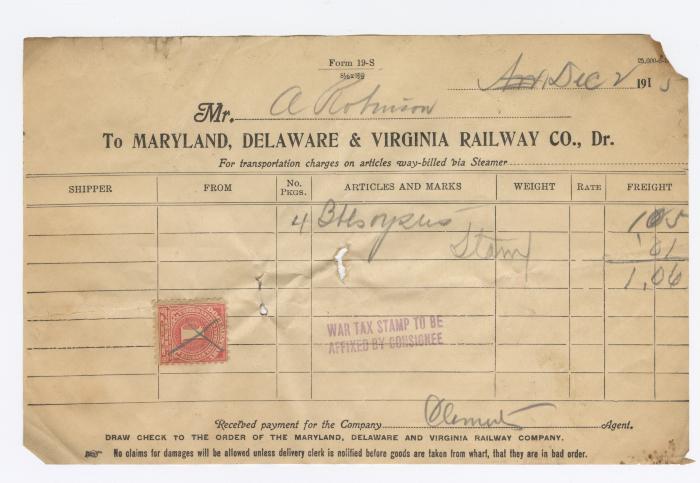 Form 19-S
Dec 2 191
Mr. A Robinson
To MARYLAND, DELAWARE & VIRGINIA RAILWAY CO., Dr.
For transportation charges on articles way-billed via Steamer
SHIPPER FROM No. PKGS. ARTICLES AND MARKS WEIGHT RATE FREIGHT
4 Bbls oysters 1 05
Stamp 01
1,06
WAR TAX STAMP TO BE
AFFIXED BY CONSIGNEE
Received payment for the Company Clements Agent.
DRAW CHECK TO THE ORDER OF THE MARYLAND, DELAWARE AND VIRGINIA RAILWAY COMPANY.
No claims for damages will be allowed unless delivery clerk is notified before goods are taken from wharf, that they are in bad order.